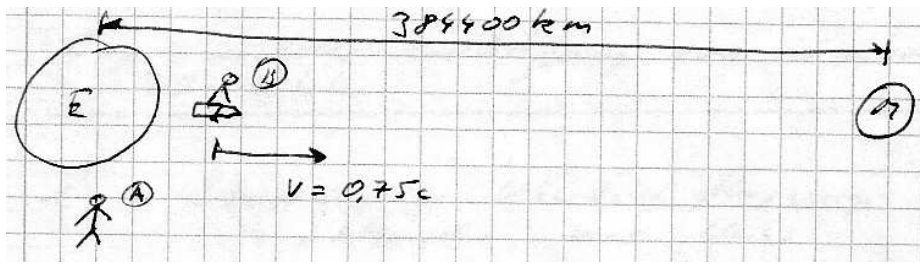 384400 km
E
B
M
v = 0,75c
A